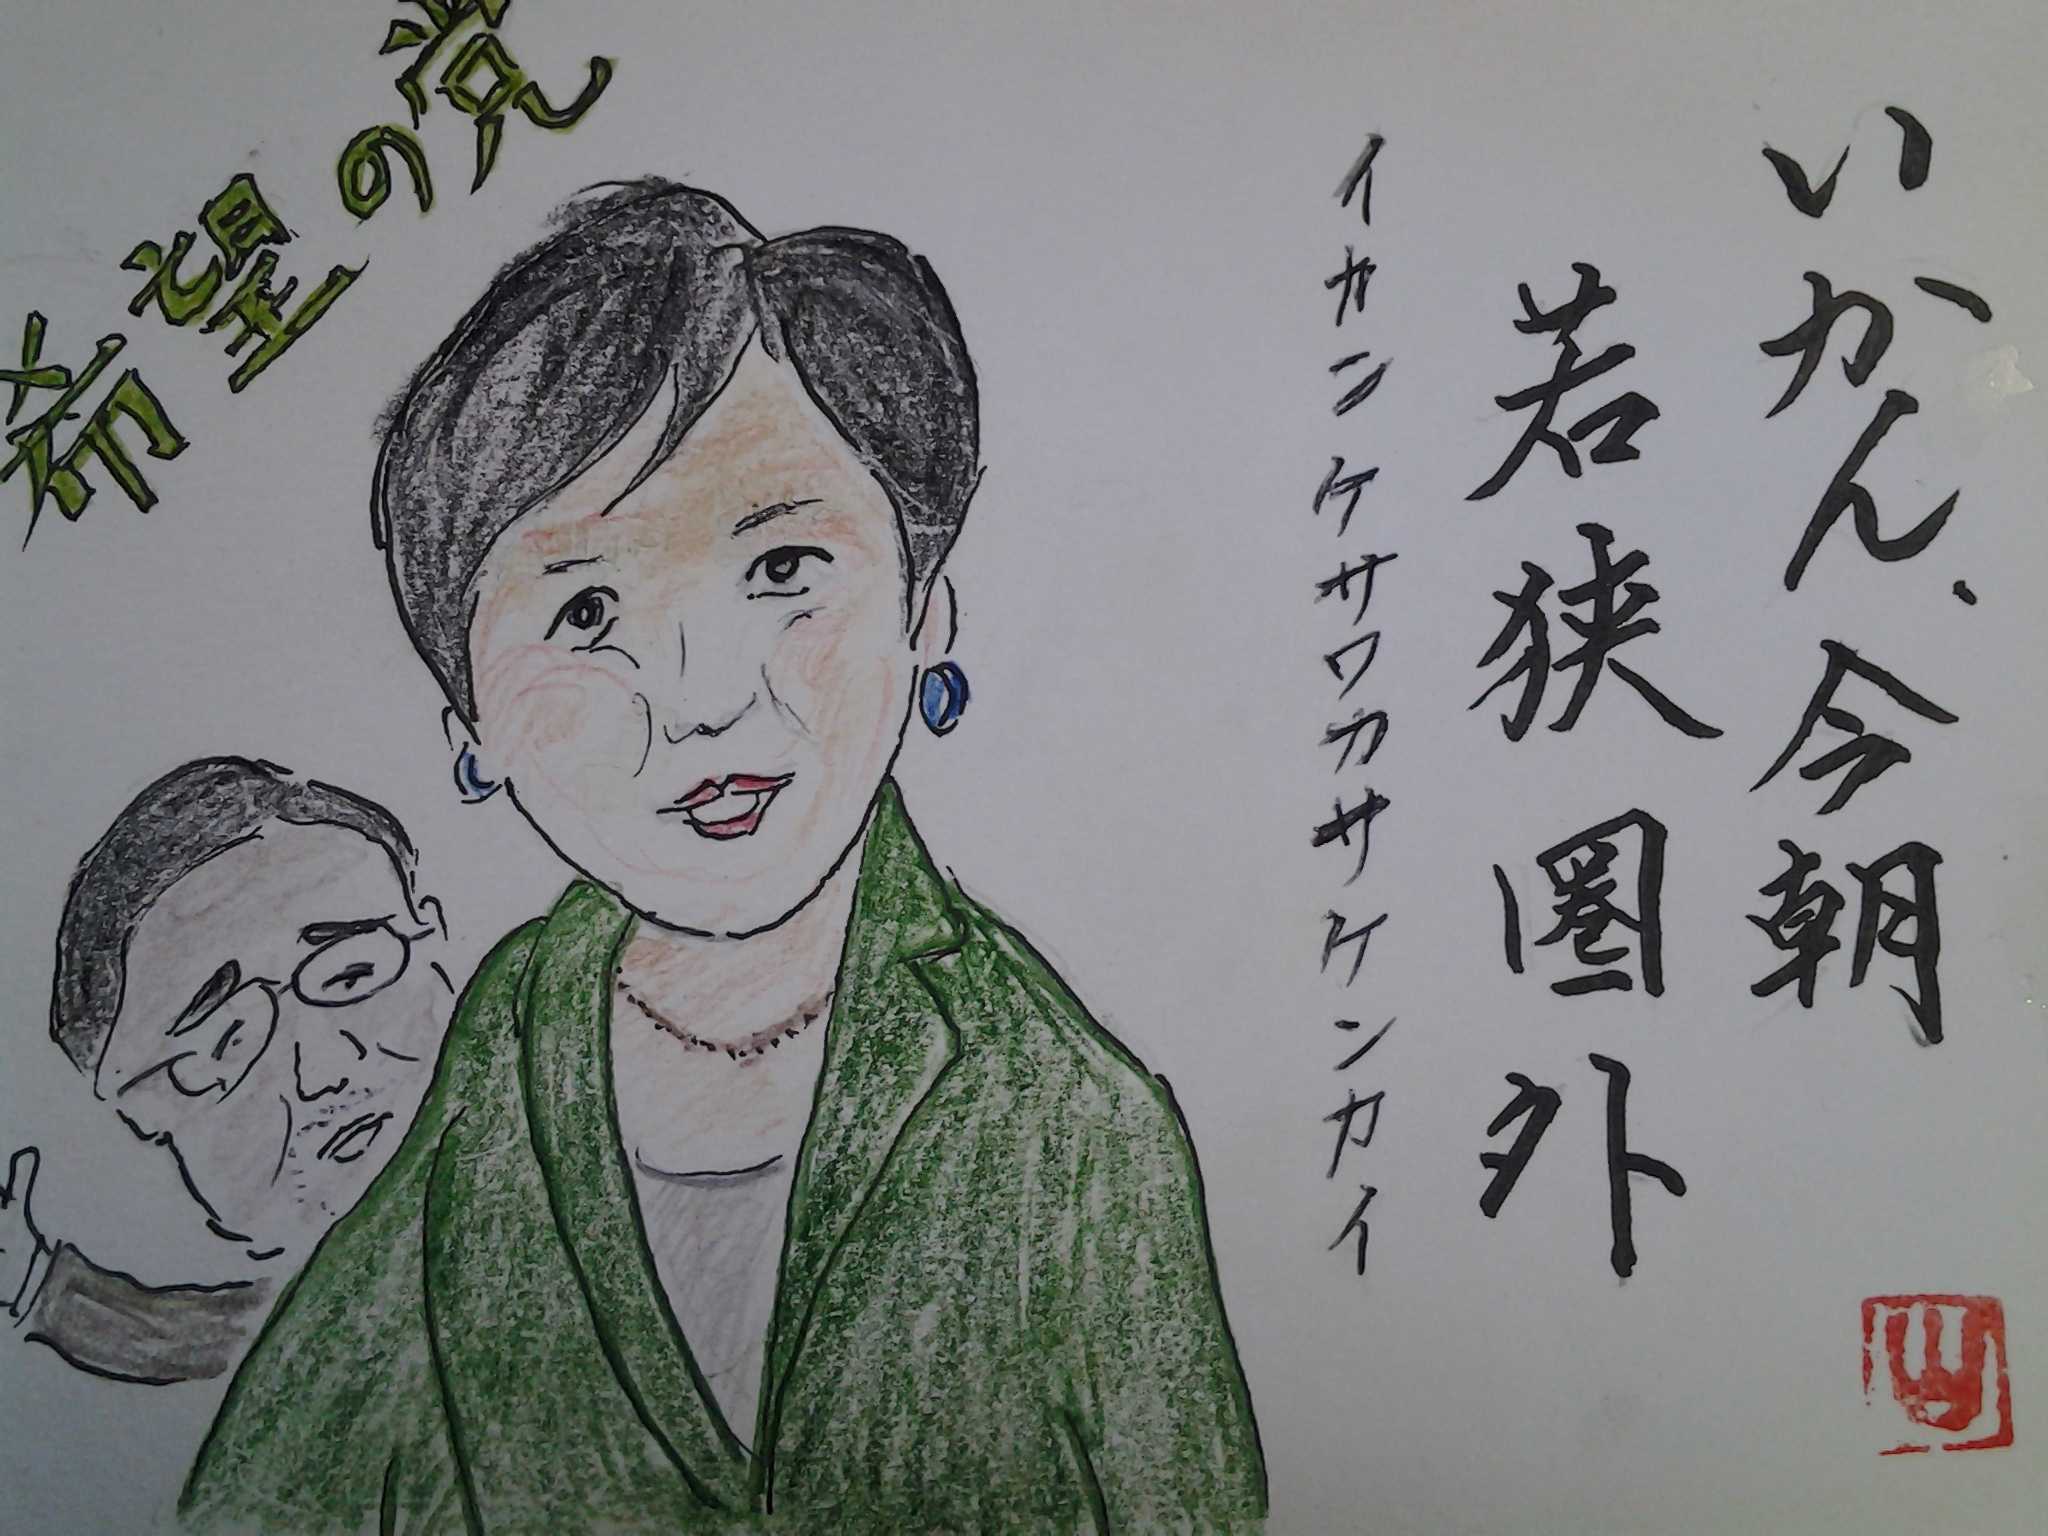 いかん、今朝
若狭圏外
イカンケサワカサケンカイ
希望の党